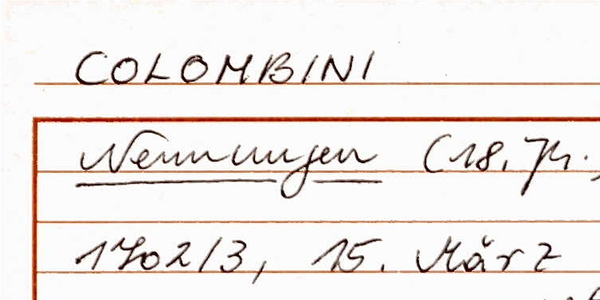 COLOMBINI
Nennungen (18. Jh.
1702/3, 15. März